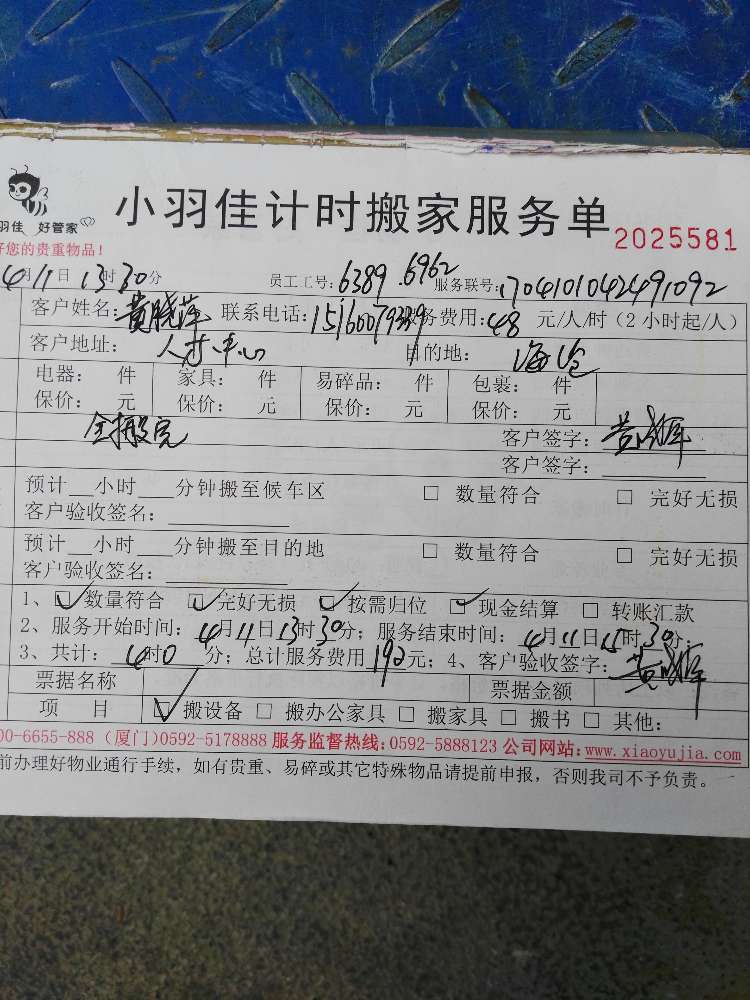 小羽佳计时搬家服务单
2025581
羽佳 好管家
好您的贵重物品！
4月11日13时30分 员工工号：6389.6962 服务联号：1704101042491092
客户姓名：黄晓萍 联系电话：15160079339 服务费用：48 元/人/时（2小时起/人）
客户地址：人才中心 目的地：海沧
电器： 件 家具： 件 易碎品： 件 包裹： 件
保价： 元 保价： 元 保价： 元 保价： 元
全搬完 客户签字：
客户签字：
预计__小时___分钟搬至候车区 □ 数量符合 □ 完好无损
客户验收签名：
预计__小时___分钟搬至目的地 □ 数量符合 □ 完好无损
客户验收签名：
1、☑数量符合 ☑完好无损 ☑按需归位 ☑现金结算 □ 转账汇款
2、服务开始时间：4月11日13时30分；服务结束时间：4月11日15时30分；
3、共计：4时0分；总计服务费用192元；4、客户验收签字：
票据名称 票据金额
项 目 ☑搬设备 □ 搬办公家具 □ 搬家具 □ 搬书 □ 其他：
00-6655-888（厦门）0592-5178888 服务监督热线：0592-5888123 公司网站：www.xiaoyujia.com
前办理好物业通行手续，如有贵重、易碎或其它特殊物品请提前申报，否则我司不予负责。